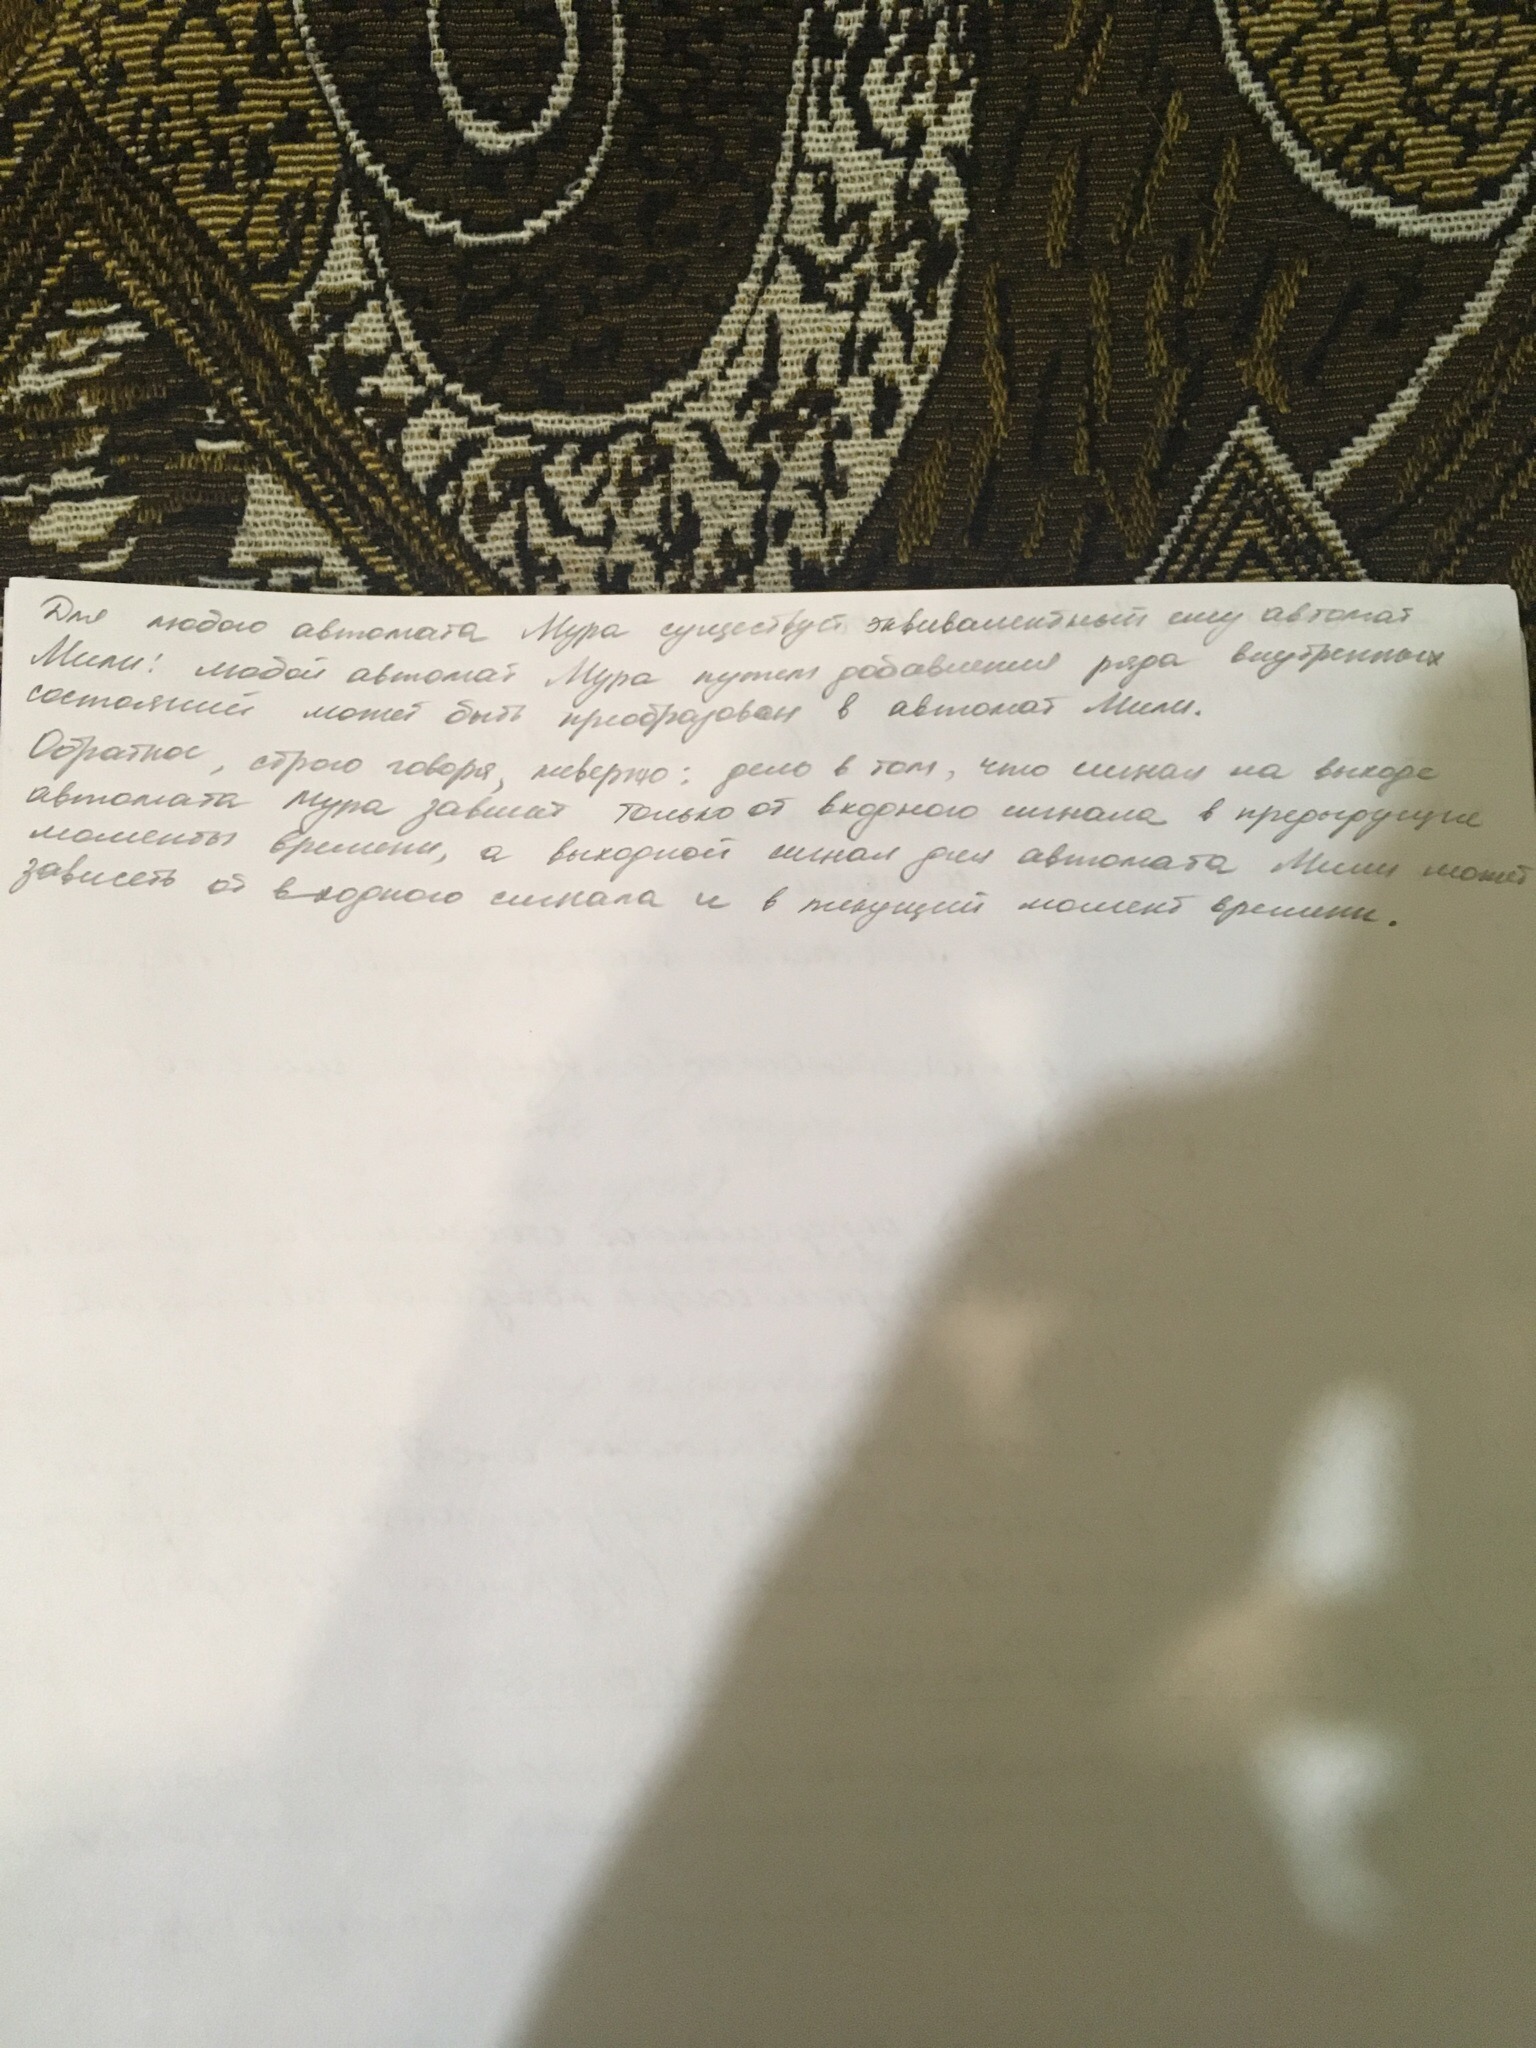 Для любого автомата Мура существует эквивалентный ему автомат
Мили: любой автомат Мура путем добавления ряда внутренних
состояний может быть преобразован в автомат Мили.
Обратное, строго говоря, неверно: дело в том, что сигнал на выходе
автомата Мура зависит только от входного сигнала в предыдущие
моменты времени, а выходной сигнал для автомата Мили может
зависеть от входного сигнала и в текущий момент времени.